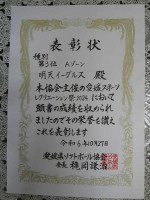 表彰状
種別
第3位 Aゾーン
明天イーグルス 殿
本協会主催の愛媛スポーツ
レクリエーション祭2024において
頭書の成績を収められ
ましたのでその栄誉を讃え
これを表彰します
令和6年10月27日
愛媛県ソフトボール協会
会長